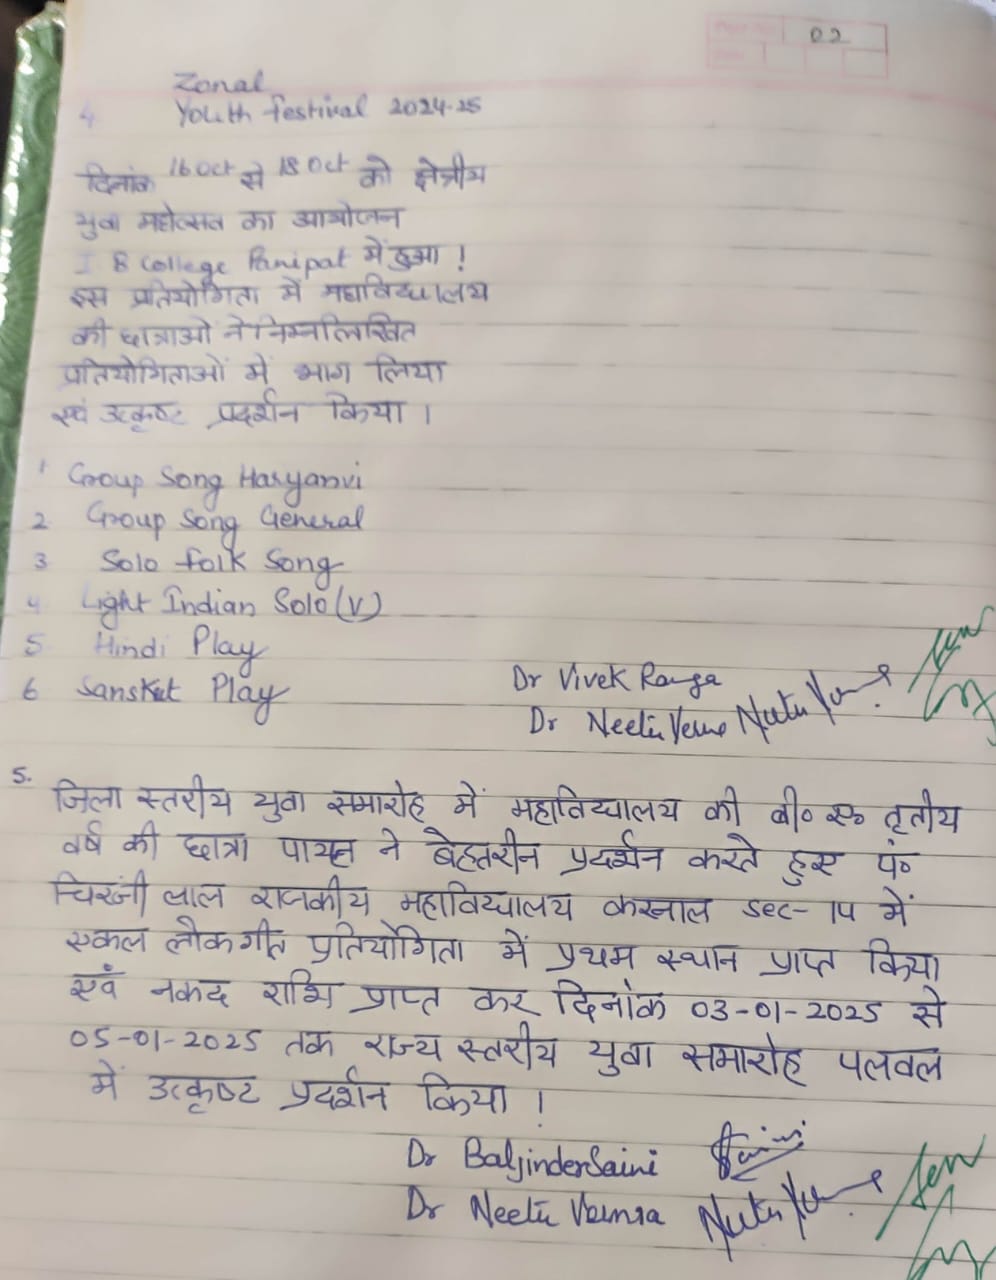 02
Zonal
4 Youth festival 2024-25
दिनांक 16 Oct से 18 Oct को क्षेत्रीय
युवा महोत्सव का आयोजन
I B College Panipat में हुआ !
इस प्रतियोगिता में महाविद्यालय
की छात्राओं ने निम्नलिखित
प्रतियोगिताओं में भाग लिया
एवं उत्कृष्ट प्रदर्शन किया ।
1 Group Song Haryanvi
2 Group Song General
3 Solo folk Song
4 Light Indian Solo (V)
5 Hindi Play
6 Sanskrit Play
Dr Vivek Ranga
Dr Neetu Verma
5. जिला स्तरीय युवा समारोह में महाविद्यालय की बी० ए० तृतीय
वर्ष की छात्रा पायल ने बेहतरीन प्रदर्शन करते हुए पं०
चिरंजी लाल राजकीय महाविद्यालय करनाल sec- 14 में
एकल लोकगीत प्रतियोगिता में प्रथम स्थान प्राप्त किया
एवं नकद राशि प्राप्त कर दिनांक 03-01-2025 से
05-01-2025 तक राज्य स्तरीय युवा समारोह पलवल
में उत्कृष्ट प्रदर्शन किया ।
Dr Baljinder Saini
Dr Neetu Verma